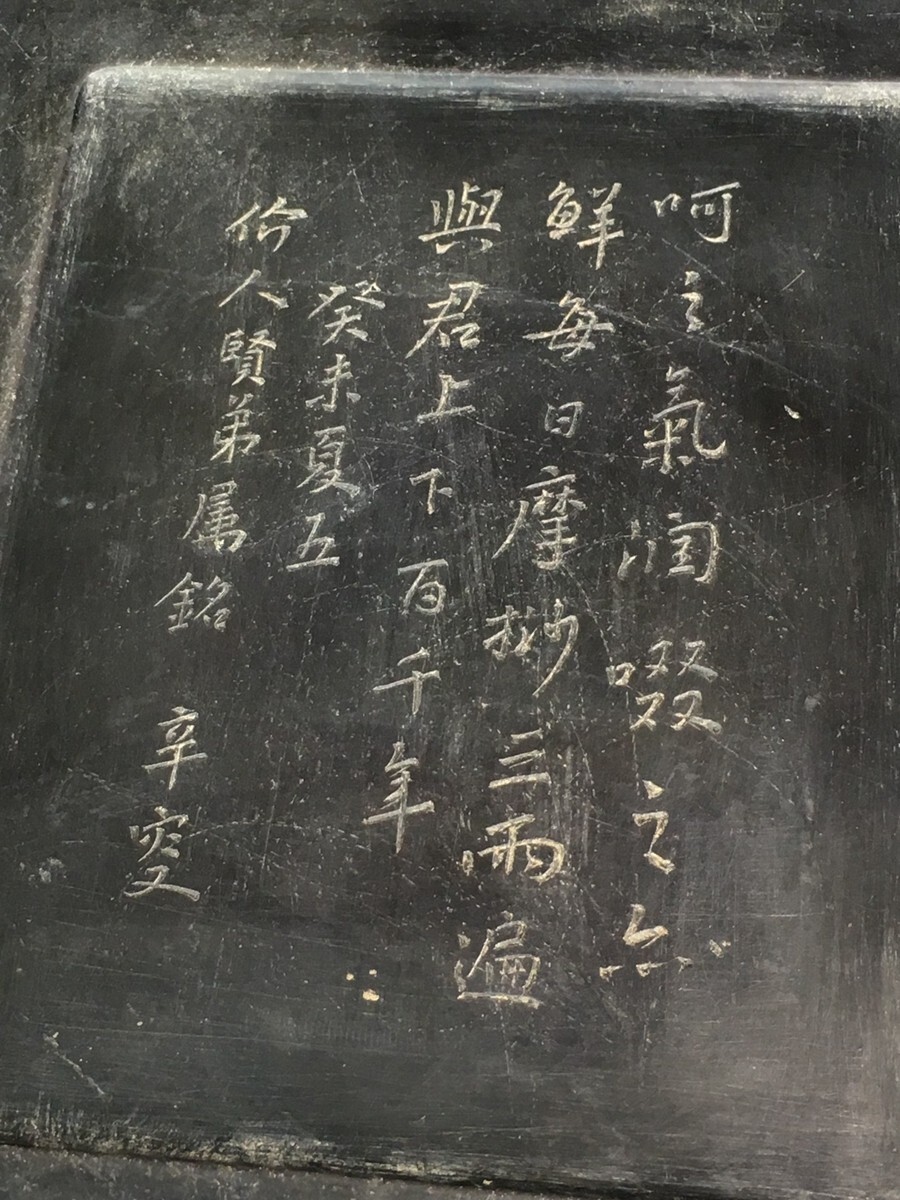 呵之氣润啜之亦
鮮每日摩挱三兩遍
與君上下百千年
癸未夏五
人賢弟属銘 辛叜